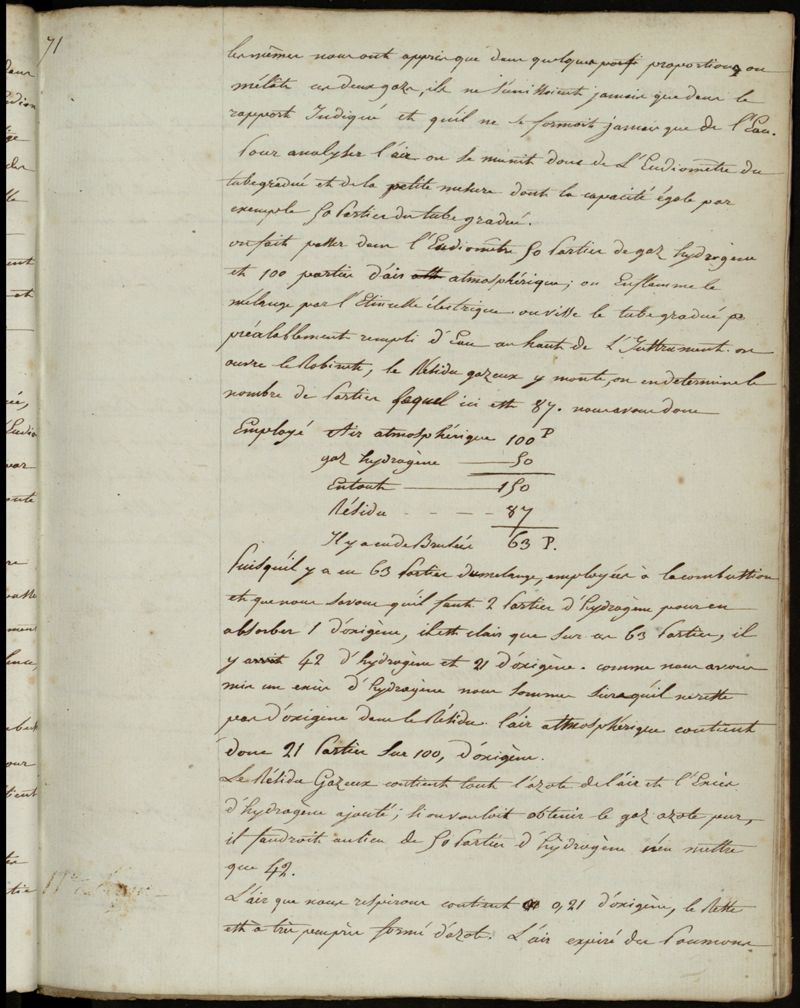 71
les mèmes nous ont appris que dans quelques proportions on
mélât ces deux gazs, ils ne s'unissoient jamais que dans le
rapport Indiqué et qu'il ne se formoit jamais que de l'Eau.
Pour analyser l'air on se munit donc de L'Eudiomètre du
tube gradué et de la petite mesure dont la capacité égale par
exemple 50 Parties du tube gradué.
on fait passer dans l'Eudiomètre 50 Parties de gaz hydrogène
et 100 parties d'air atmosphérique; on Enflamme le
mélange par l'Etincelle électrique. on visse le tube gradué
préalablement rempli d'Eau au haut de L'Instrument. on
ouvre le Robinet, le Résidu gazeux y monte, on en determine le
nombre de Parties lequel ici est 87. nous avons donc
Employé Air atmosphérique 100 P
gaz hydrogène — 50
En tout — 150
Résidu - - - - 87
Il y a eu de Brulées 63 P.
Puisqu'il y a eu 63 Parties du mélange, employées à la combustion
et que nous savons qu'il faut 2 Parties d'hydrogène pour en
absorber 1 d'oxigène, il est clair que sur ces 63 Parties, il
y avoit 42 d'hydrogène et 21 d'oxigène. comme nous avons
mis un excès d'hydrogène nous sommes sûrs qu'il ne reste
pas d'oxigène dans le Résidu. l'air atmosphérique contient
donc 21 Parties sur 100, d'oxigène.
Le Résidu Gazeux contient tout l'azote de l'air et l'Excès
d'hydrogène ajouté; si on vouloit obtenir le gaz azote pur,
il faudroit au lieu de 50 Parties d'hydrogène n'en mettre
que 42.
L'air que nous respirons contient 0,21 d'oxigène, le Reste
est à très peu près formé d'azote. L'air expiré des Poumons